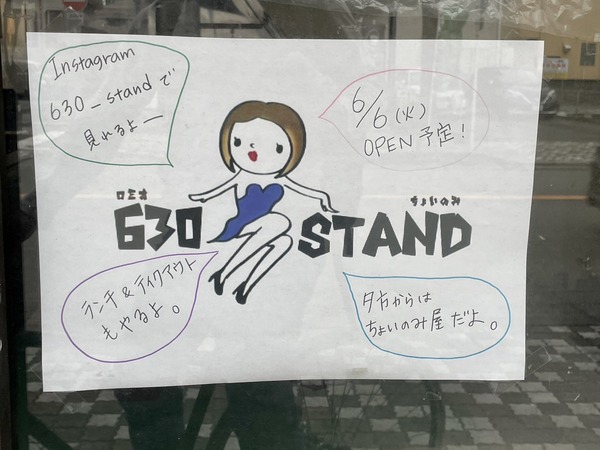 Instagram
630_standで
見れるよー
6/6(火)
OPEN予定!
ロミオ
630
ちょいのみ
STAND
ランチ&テイクアウト
もやるよ。
夕方からは
ちょいのみ屋だよ。